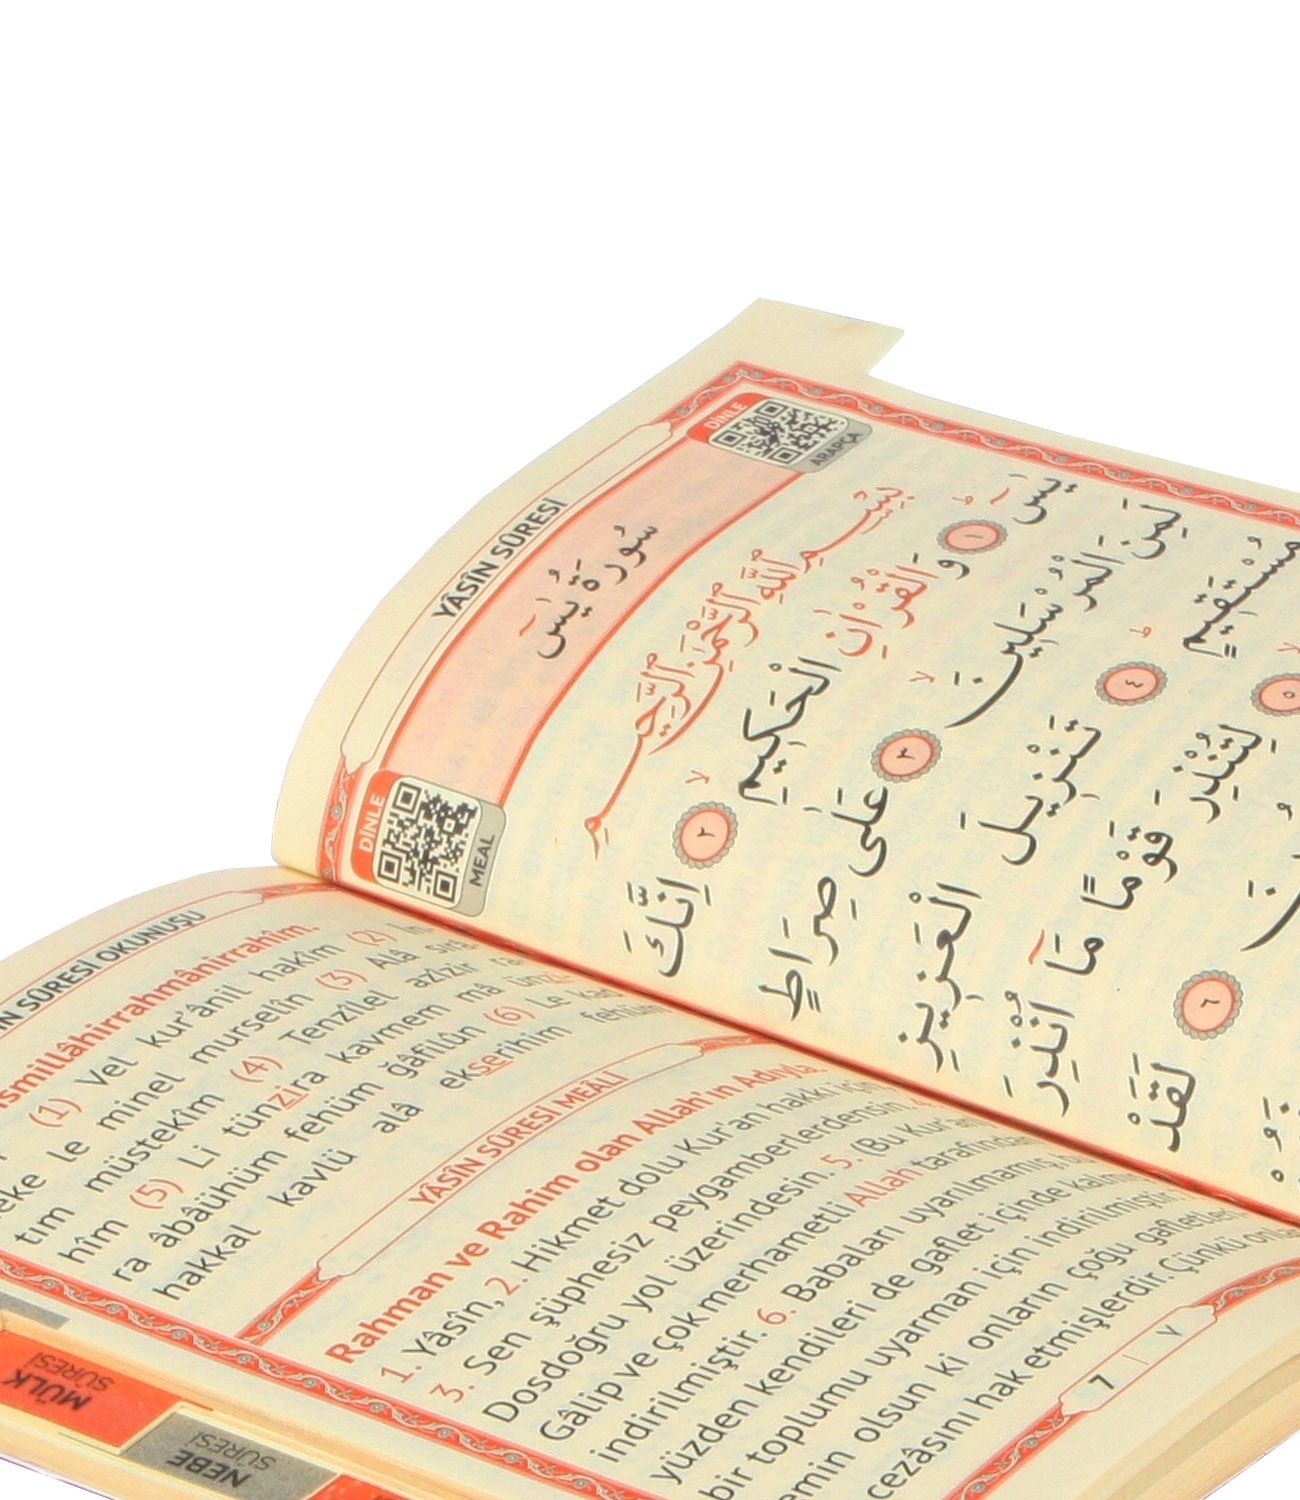 YÂSÎN SÛRESİ
DİNLE
ARAPÇA
سُورَةُ يٰسٓ
DİNLE
MEAL
بِسْمِ اللّٰهِ الرَّحْمٰنِ الرَّحِيمِ
يٰسٓ ۚ ﴿١﴾ وَالْقُرْاٰنِ الْحَكِيمِ ۙ ﴿٢﴾ اِنَّكَ
لَمِنَ الْمُرْسَلِينَ ۙ ﴿٣﴾ عَلٰى صِرَاطٍ
مُسْتَقِيمٍ ۜ ﴿٤﴾ تَنْزِيلَ الْعَزِيزِ
﴿٥﴾ لِتُنْذِرَ قَوْمًا مَٓا اُنْذِرَ
﴿٦﴾ لَقَدْ
SÛRESİ OKUNUŞU
(1) Vel kur'ânil hakîm (2) İn-
neke le minel murselîn (3) Alâ sırâ-
tım müstekîm (4) Tenzîlel azîzir ra-
hîm (5) Li tünzira kavmem mâ ünzi-
ra âbâühüm fehüm ğâfilûn (6) Le kad
hakkal kavlü alâ ekserihim fehüm
YÂSÎN SÛRESİ MEÂLİ
Rahman ve Rahim olan Allah'ın Adıyla.
1. Yâsîn, 2. Hikmet dolu Kur'an hakkı için
3. Sen şüphesiz peygamberlerdensin. 4.
Dosdoğru yol üzerindesin. 5. (Bu Kur'an
Gâlip ve çok merhametli Allah tarafından
indirilmiştir. 6. Babaları uyarılmamış, bu
yüzden kendileri de gaflet içinde kalmış
bir toplumu uyarman için indirilmiştir.
emin olsun ki onların çoğu gafletleri
cezâsını hak etmişlerdir. Çünkü onlar
7 | ٧
MÜLK
SÛRESİ
NEBE
SÛRESİ